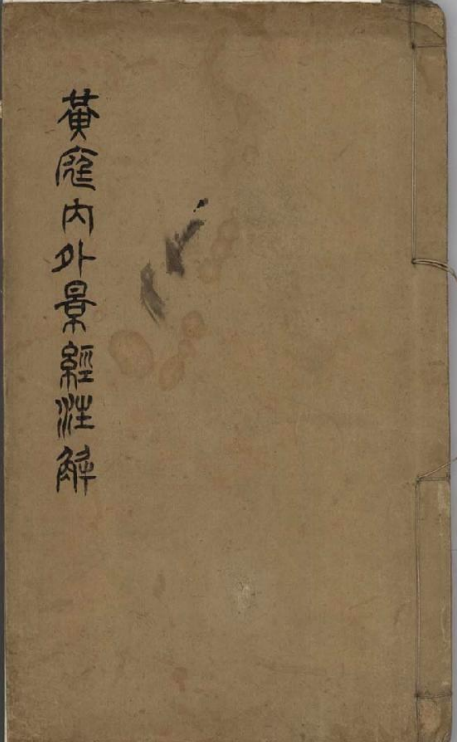 黃庭內外景經注解